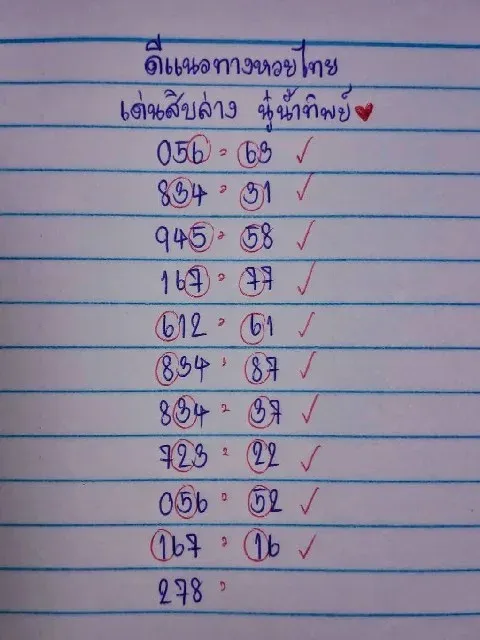 ดีแนอทางหวยไทย
เด่นสิบล่าง นู๋น้ำทิพย์
056 = 63 ✓
834 = 31 ✓
945 = 58 ✓
167 = 77 ✓
612 = 61 ✓
834 = 87 ✓
834 = 37 ✓
723 = 22 ✓
056 = 52 ✓
167 = 16 ✓
278 =